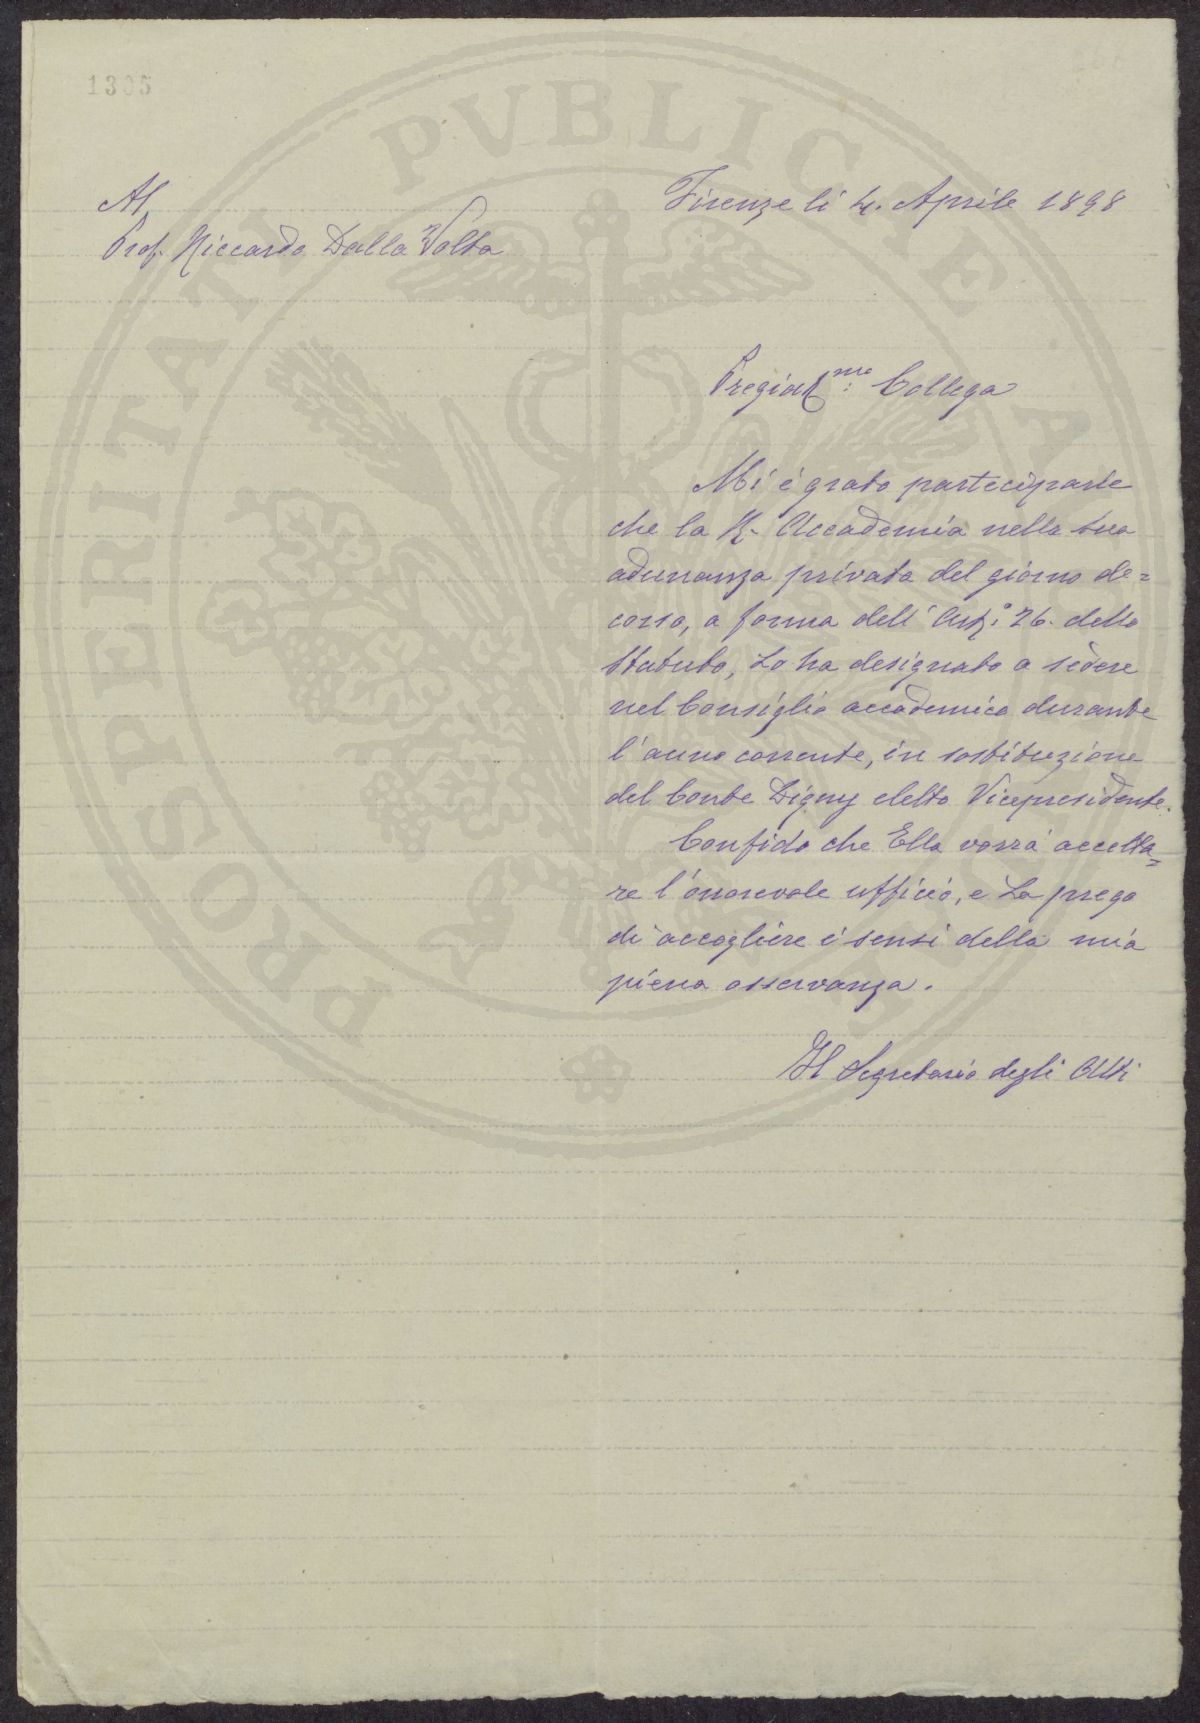 1305
PROSPERITATI PVBLICAE AVGENDAE
Firenze li 4. Aprile 1898
Al
Prof. Riccardo Dalla Volta
Pregiat.mo Collega
Mi è grato parteciparle
che la R. Accademia nella sua
adunanza privata del giorno de=
corso, a forma dell'Art.° 26. dello
Statuto, Lo ha designato a sedere
nel Consiglio accademico durante
l'anno corrente, in sostituzione
del Conte Digny eletto Vicepresidente.
Confido che Ella vorrà accetta=
re l'onorevole ufficio, e La prego
di accogliere i sensi della mia
piena osservanza.
Il Segretario degli Atti